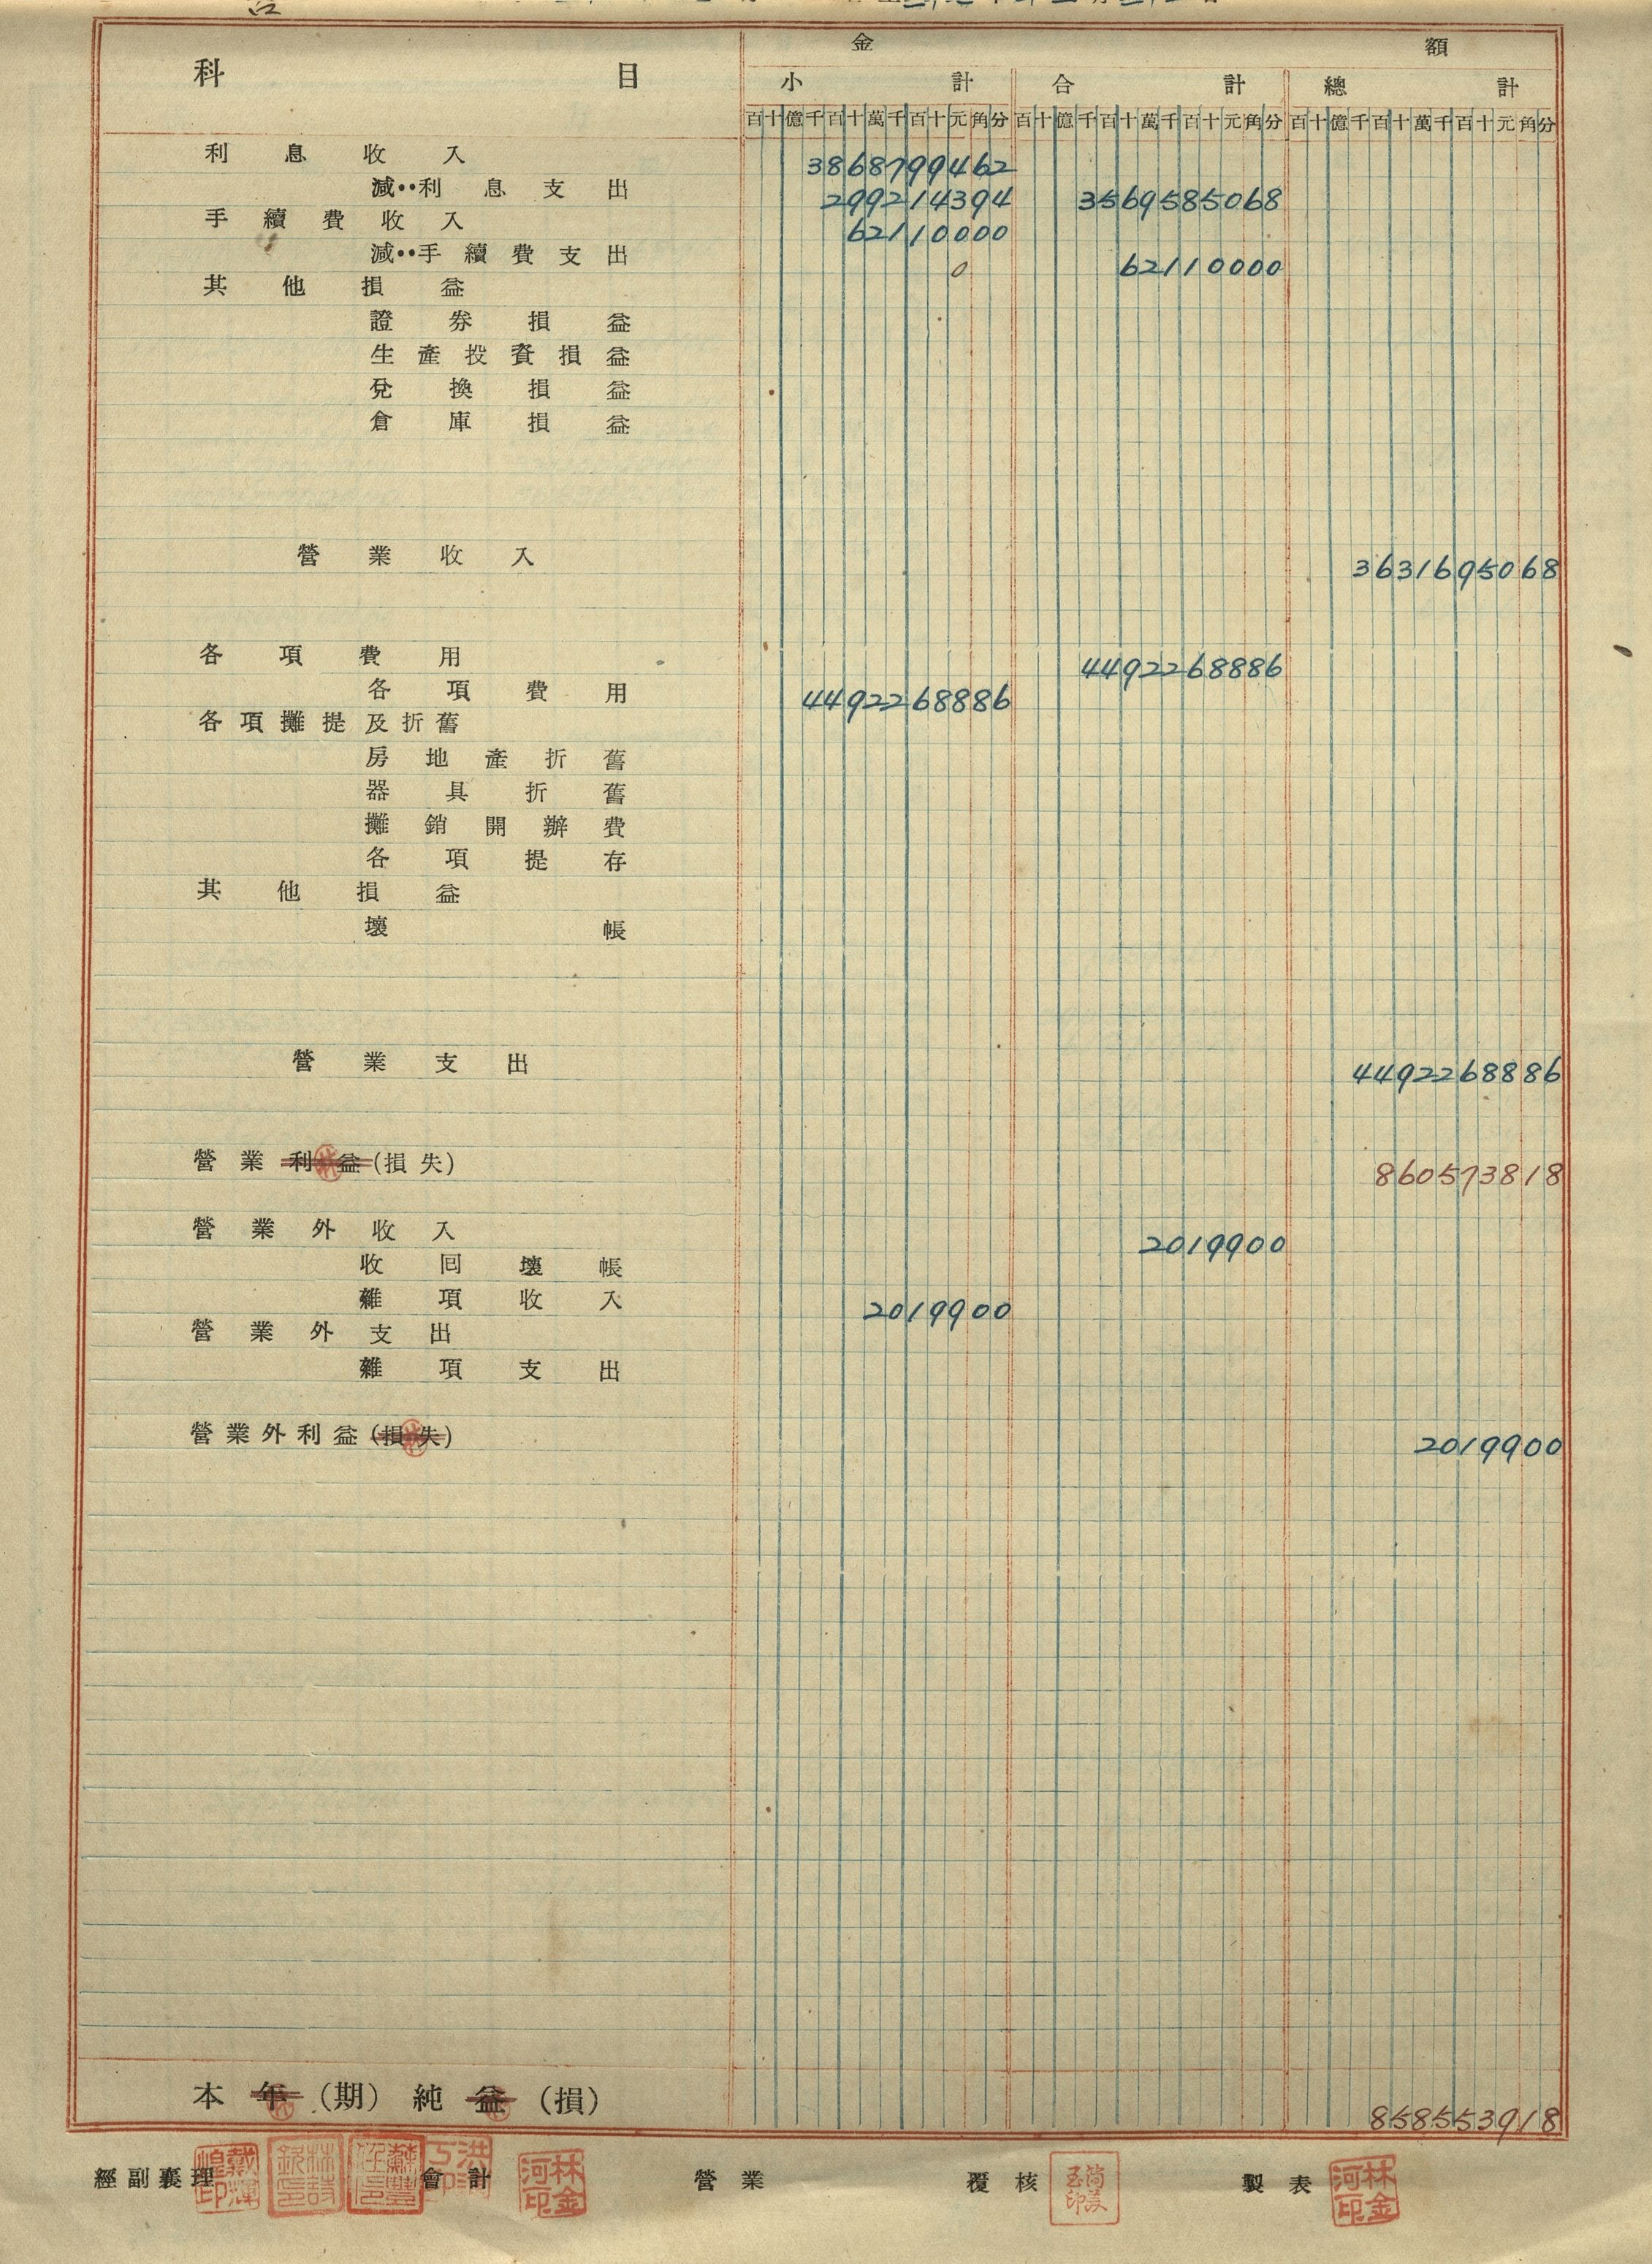 金 額
科 目
小 計 合 計 總 計
百十億千百十萬千百十元角分 百十億千百十萬千百十元角分 百十億千百十萬千百十元角分
利息收入 3868799462
減：利息支出 299214394 3569585068
手續費收入 62110000
減：手續費支出 0 62110000
其他損益
證券損益
生產投資損益
兌換損益
倉庫損益
營業收入 3631695068
各項費用 4492268886
各項費用 4492268886
各項攤提及折舊
房地產折舊
器具折舊
攤銷開辦費
各項提存
其他損益
壞帳
營業支出 4492268886
營業利益(損失) 860573818
營業外收入 2019900
收回壞帳
雜項收入 2019900
營業外支出
雜項支出
營業外利益(損失) 2019900
本年(期)純益(損) 858553918
經副襄理 會計 林金河印 營業 覆核 製表 林金河印